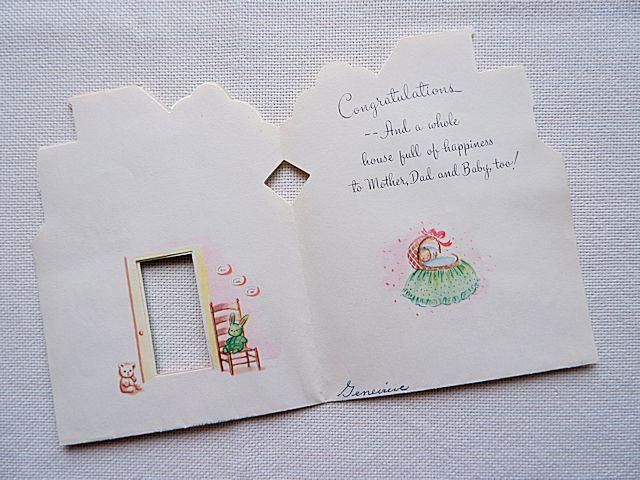 Congratulations
--And a whole
house full of happiness
to Mother, Dad and Baby, too!
Genevieve